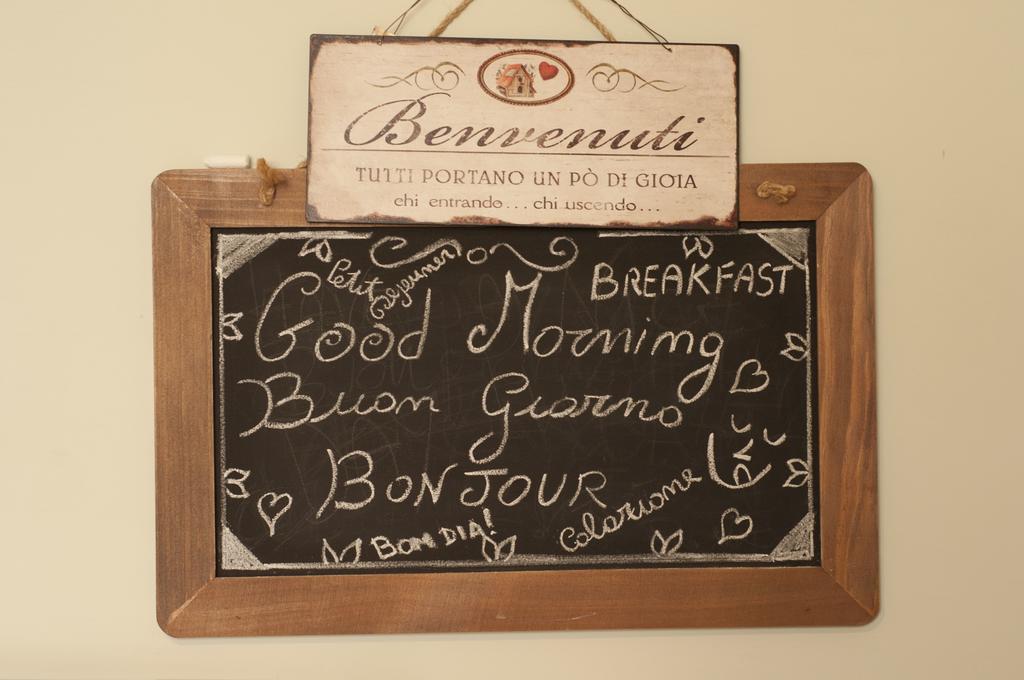 Benvenuti
TUTTI PORTANO UN PÒ DI GIOIA
chi entrando... chi uscendo...
Petit
Dejeuner
BREAKFAST
Good Morning
Buon Giorno
BONJOUR
BOM DIA!
Colazione